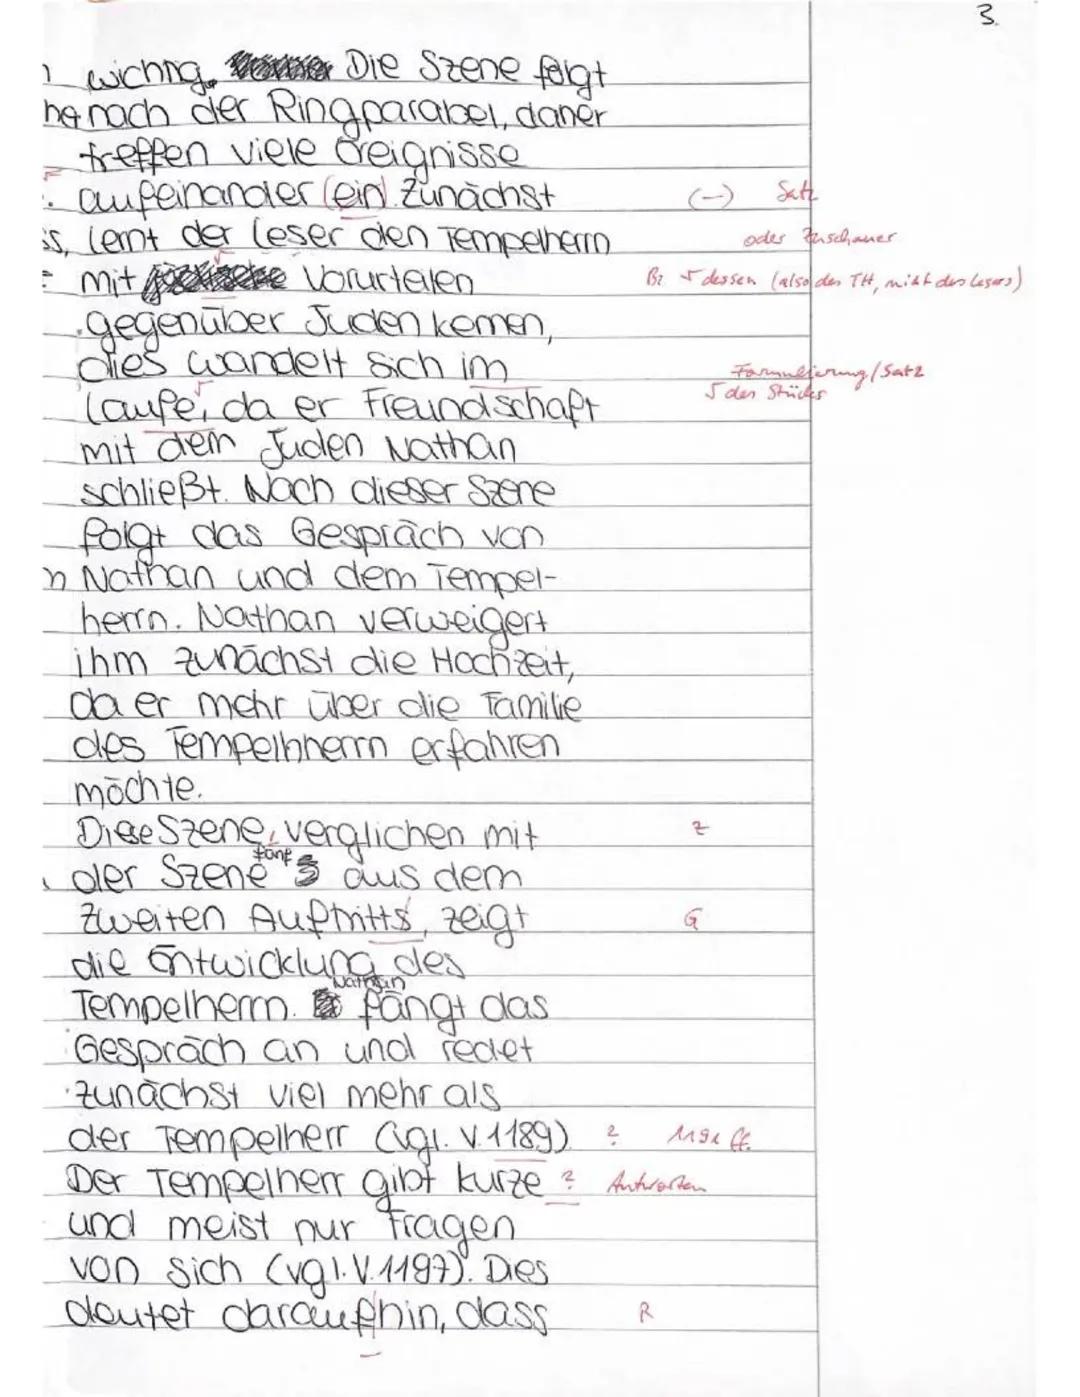 3.
wichtig. Die Szene folgt
nach der Ringparabel, daher
treffen viele Ereignisse
aufeinander (ein). Zunächst (-) Satz
lernt der Leser den Tempelherrn oder Zuschauer
mit Vorurteilen Bz √ dessen (also des TH, nicht des Lesers)
gegenüber Juden kennen,
dies wandelt sich im Formulierung/Satz
Laufe, da er Freundschaft √ des Stücks
mit dem Juden Nathan
schließt. Nach dieser Szene
folgt das Gespräch von
Nathan und dem Tempel-
herrn. Nathan verweigert
ihm zunächst die Hochzeit,
da er mehr über die Familie
des Tempelhherrn erfahren
möchte.
Diese Szene, verglichen mit Z
der Szene fünf aus dem
zweiten Auftritts, zeigt G
die Entwicklung des
Tempelherrn. Nathan fängt das
Gespräch an und redet
zunächst viel mehr als
der Tempelherr (vgl. V.1189) ? 1191 ff.
Der Tempelherr gibt kurze ? Antworten
und meist nur Fragen
von sich (vgl. V.1197). Dies
deutet daraufhin, dass R